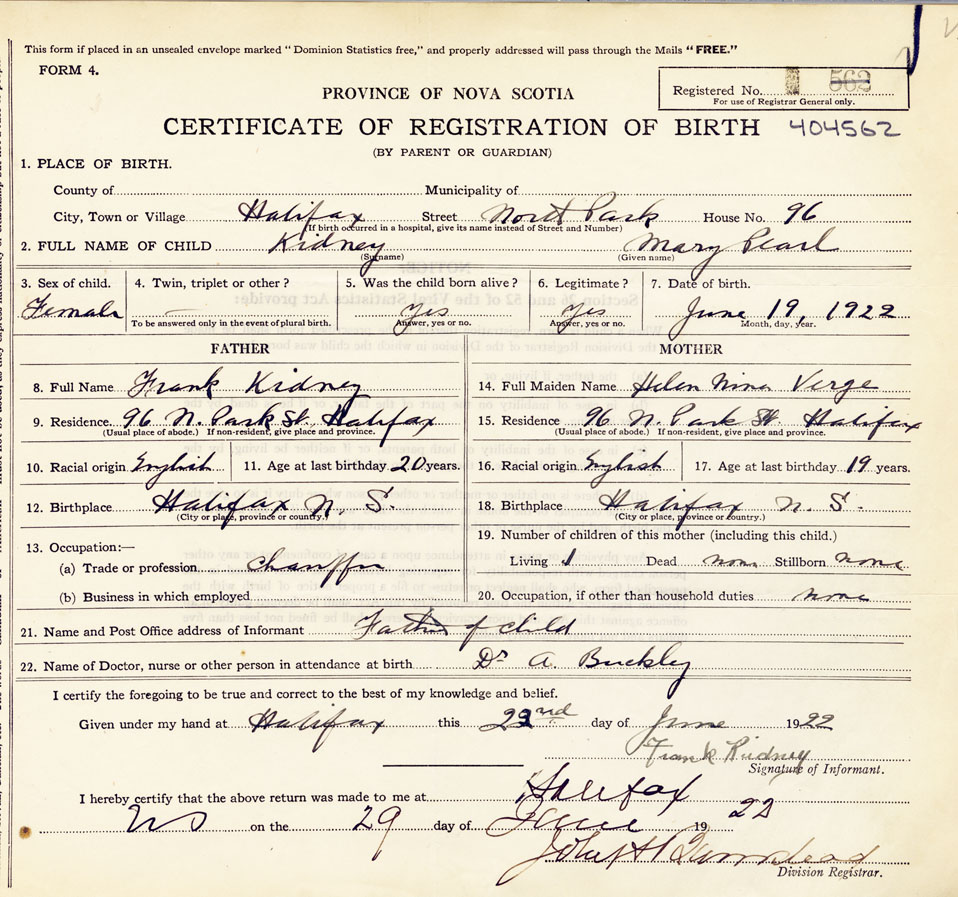 This form if placed in an unsealed envelope marked "Dominion Statistics free," and properly addressed will pass through the Mails "FREE."
FORM 4.
Registered No. 562
For use of Registrar General only.
PROVINCE OF NOVA SCOTIA
CERTIFICATE OF REGISTRATION OF BIRTH 404562
(BY PARENT OR GUARDIAN)
1. PLACE OF BIRTH.
County of Municipality of
City, Town or Village Halifax Street North Park House No. 96
(If birth occurred in a hospital, give its name instead of Street and Number)
2. FULL NAME OF CHILD Kidney Mary Pearl
(Surname) (Given name)
3. Sex of child. 4. Twin, triplet or other? 5. Was the child born alive? 6. Legitimate? 7. Date of birth.
Female — Yes Yes June 19, 1922
To be answered only in the event of plural birth. Answer, yes or no. Answer, yes or no. Month, day, year.
FATHER
8. Full Name Frank Kidney
9. Residence 96 N. Park St. Halifax
(Usual place of abode.) If non-resident, give place and province.
10. Racial origin English 11. Age at last birthday 20 years.
12. Birthplace Halifax N. S.
(City or place, province or country.)
13. Occupation:—
(a) Trade or profession chauffer
(b) Business in which employed
MOTHER
14. Full Maiden Name Helen Nina Verge
15. Residence 96 N. Park St. Halifax
(Usual place of abode.) If non-resident, give place and province.
16. Racial origin English 17. Age at last birthday 19 years.
18. Birthplace Halifax N. S.
(City or place, province or country.)
19. Number of children of this mother (including this child.)
Living 1 Dead none Stillborn none
20. Occupation, if other than household duties none
21. Name and Post Office address of Informant Father of child
22. Name of Doctor, nurse or other person in attendance at birth Dr A. Buckley
I certify the foregoing to be true and correct to the best of my knowledge and belief.
Given under my hand at Halifax this 22nd day of June 1922
Frank Kidney
Signature of Informant.
I hereby certify that the above return was made to me at Halifax
NS on the 29 day of June 19 22
John H
Division Registrar.